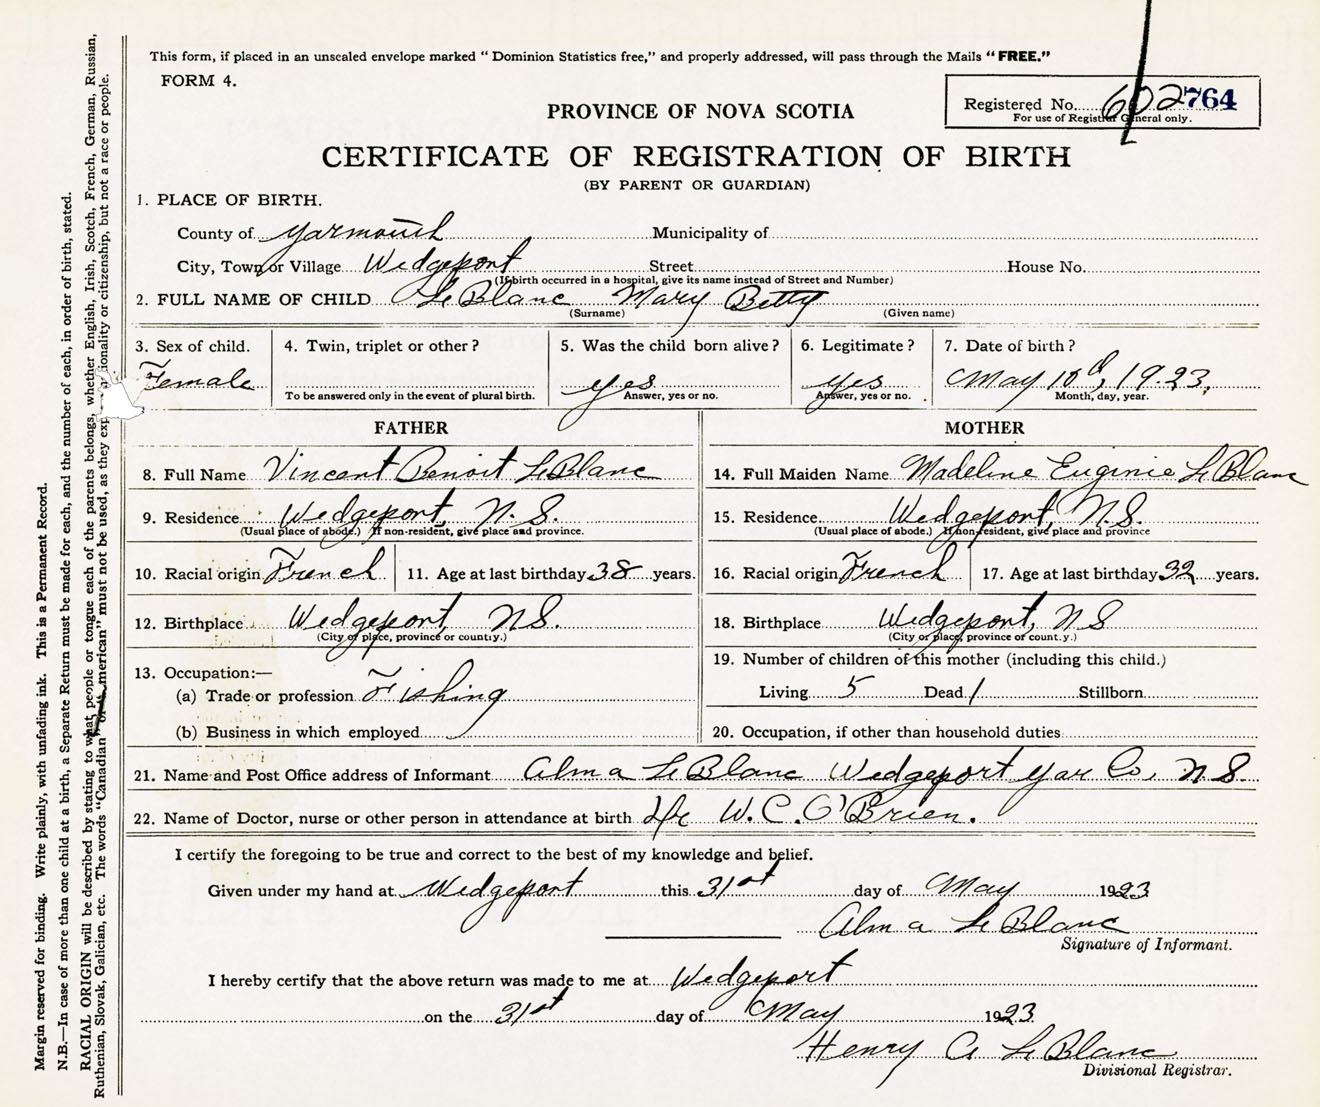 This form, if placed in an unsealed envelope marked "Dominion Statistics free," and properly addressed, will pass through the Mails "FREE."
FORM 4.
Registered No. 602764
For use of Registrar General only.
PROVINCE OF NOVA SCOTIA
CERTIFICATE OF REGISTRATION OF BIRTH
(BY PARENT OR GUARDIAN)
1. PLACE OF BIRTH.
County of Yarmouth Municipality of
City, Town or Village Wedgeport Street House No.
(If birth occurred in a hospital, give its name instead of Street and Number)
2. FULL NAME OF CHILD LeBlanc Mary Betty
(Surname) (Given name)
3. Sex of child. 4. Twin, triplet or other? 5. Was the child born alive? 6. Legitimate? 7. Date of birth?
Female yes yes May 10th, 1923,
To be answered only in the event of plural birth. Answer, yes or no. Answer, yes or no. Month, day, year.
FATHER MOTHER
8. Full Name Vincent Benoit LeBlanc 14. Full Maiden Name Madeline Euginie LeBlanc
9. Residence Wedgeport, N.S. 15. Residence Wedgeport, N.S.
(Usual place of abode.) If non-resident, give place and province. (Usual place of abode.) If non-resident, give place and province
10. Racial origin French 11. Age at last birthday 38 years. 16. Racial origin French 17. Age at last birthday 32 years.
12. Birthplace Wedgeport, NS. 18. Birthplace Wedgeport, NS
(City or place, province or country.) (City or place, province or country.)
13. Occupation:— 19. Number of children of this mother (including this child.)
(a) Trade or profession Fishing Living 5 Dead 1 Stillborn
(b) Business in which employed 20. Occupation, if other than household duties
21. Name and Post Office address of Informant Alma LeBlanc Wedgeport Yar Co, NS
22. Name of Doctor, nurse or other person in attendance at birth Dr W.C. O'Brien.
I certify the foregoing to be true and correct to the best of my knowledge and belief.
Given under my hand at Wedgeport this 31st day of May 1923
Alma LeBlanc
Signature of Informant.
I hereby certify that the above return was made to me at Wedgeport
on the 31st day of May 1923
Henry A LeBlanc
Divisional Registrar.
Margin reserved for binding. Write plainly, with unfading ink. This is a Permanent Record.
N.B.—In case of more than one child at a birth, a Separate Return must be made for each, and the number of each, in order of birth, stated.
RACIAL ORIGIN will be described by stating to what people or tongue each of the parents belongs, whether English, Irish, Scotch, French, German, Russian,
Ruthenian, Slovak, Galician, etc. The words "Canadian" or "American" must not be used, as they nationality or citizenship, but not a race or people.